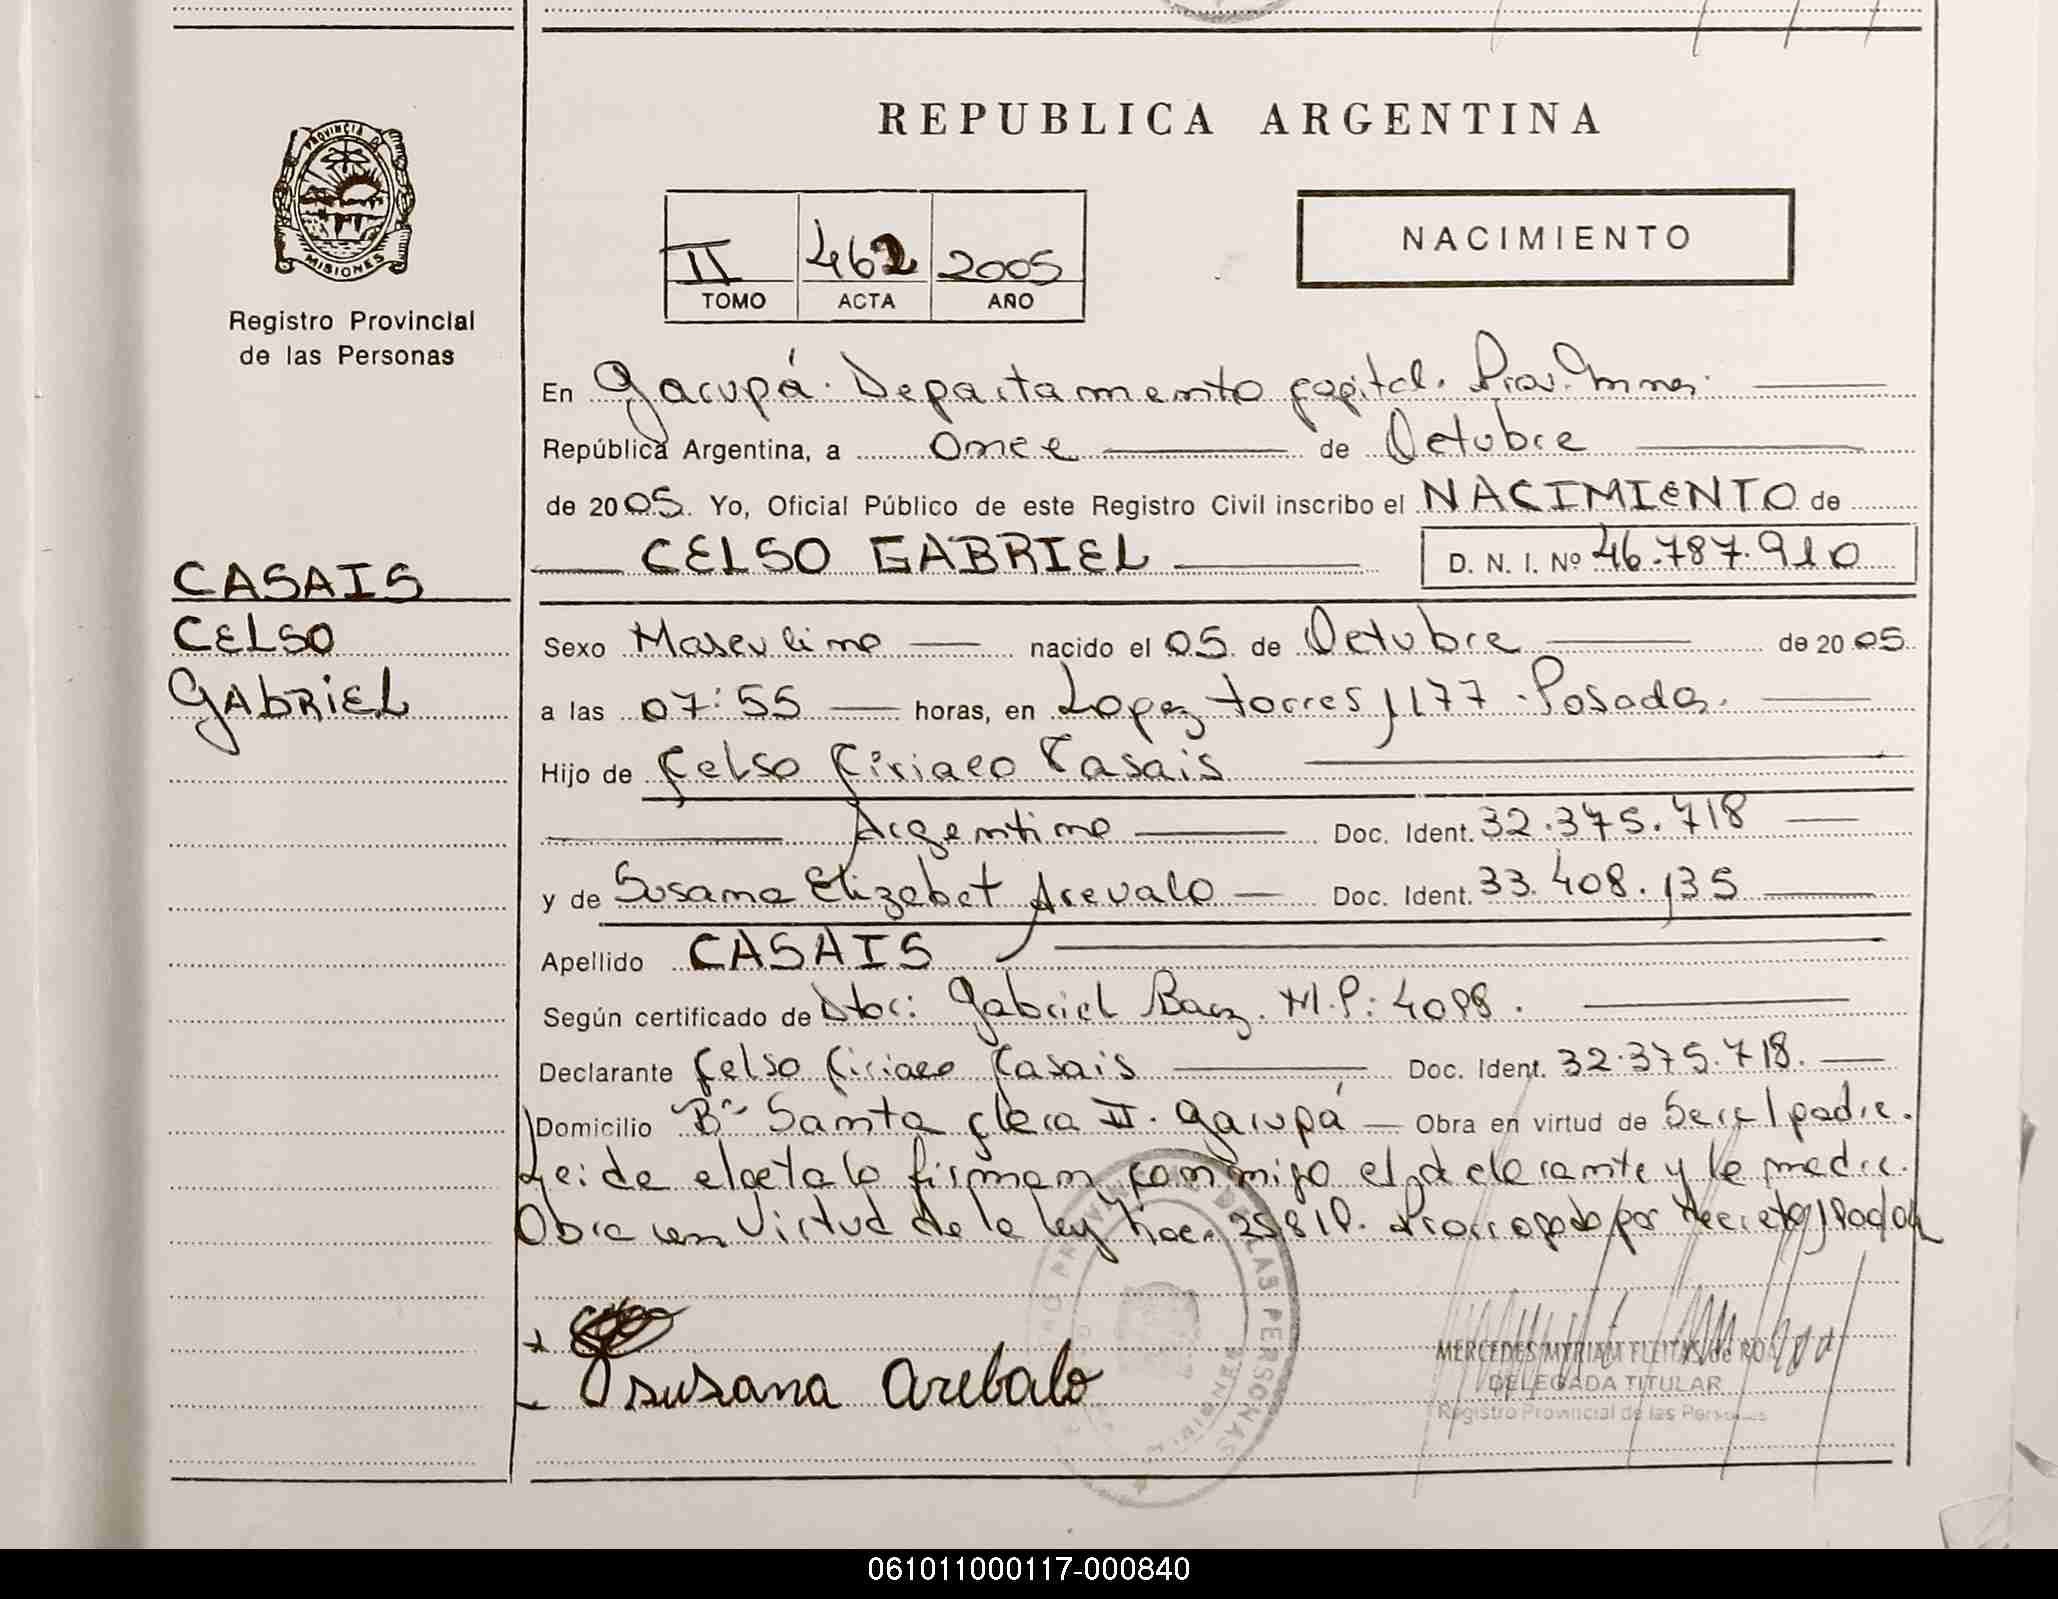 PROVINCIA DE
MISIONES
Registro Provincial
de las Personas
CASAIS
CELSO
GABRIEL
REPUBLICA ARGENTINA
II 462 2005
TOMO ACTA AÑO
NACIMIENTO
En Garupá. Departamento Capital. Prov. Mnes.
República Argentina, a once de Octubre
de 2005. Yo, Oficial Público de este Registro Civil inscribo el NACIMIENTO de
CELSO GABRIEL D. N. I. Nº 46.787.910
Sexo Masculino nacido el 05 de Octubre de 2005
a las 07:55 horas, en Lopez torres 1177. Posadas.
Hijo de Celso Ciriaco Casais
Argentino Doc. Ident. 32.375.718
y de Susana Elizabet Arevalo Doc. Ident. 33.408.135
Apellido CASAIS
Según certificado de Dtor: Gabriel Baez. M.P: 4098.
Declarante Celso Ciriaco Casais Doc. Ident. 32.375.718.
Domicilio Bº Santa Clara II. Garupá Obra en virtud de Ser el padre.
Leida el acta la firman conmigo el declarante y la madre.
Obra en Virtud de la ley Nac. 25819. Prorrogado por Decreto
susana arebalo
MERCEDES MYRIAM FLEITAS de ROA
DELEGADA TITULAR
Registro Provincial de las Personas
061011000117-000840